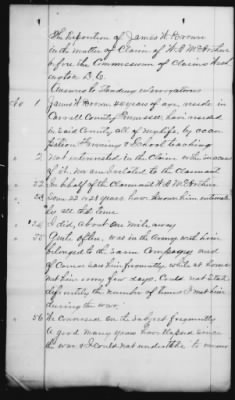 The Deposition of James W Brown
in the matter of Claim of W A McArthur
before the Commissioners of Claims Wash
ington D.C.
Answers to Standing interrogatories
No 1 James W Brown 40 years of age, reside in
Carroll County Tennessee, have resided
in said County all of my life, by occu
pation Farming & School teaching
2 Not interested in the Claim or the success
of it, nor am I related to the Claimant
22 In behalf of the Claimant W A McArthur
23 Some 22 or 23 years have known him intimate
ly all that time
24 I did, about one mile away
25 Quite often, was in the Army with him
belonged to the same Company and
of Course saw him frequently while at home
met him every few days, Could not state
definitely the number of times I met him
during the war.
26 We Conversed on the subject frequently
A good many years have elapsed since
the war & I could not undertake to